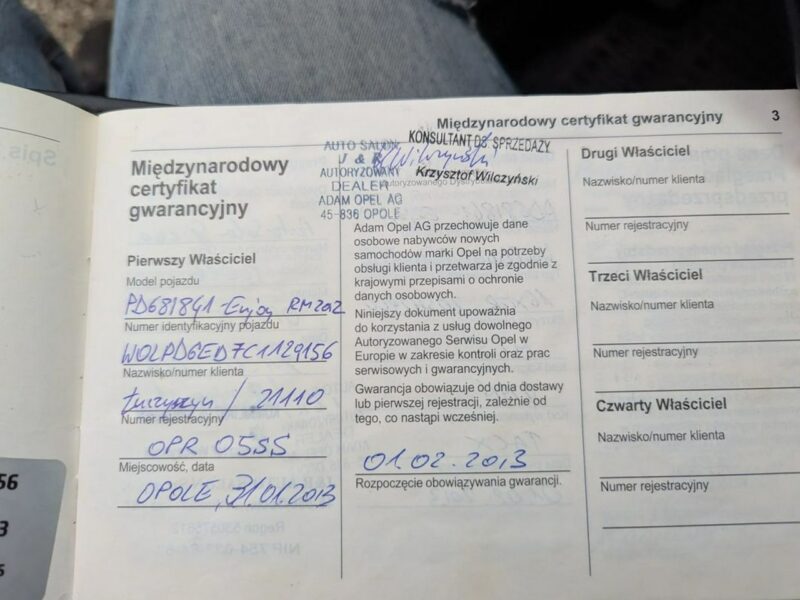 Międzynarodowy certyfikat gwarancyjny 3
Międzynarodowy
certyfikat
gwarancyjny
Pierwszy Właściciel
Model pojazdu
PD681841 - Enjoy RM202
Numer identyfikacyjny pojazdu
W0LPD6ED7C1129156
Nazwisko/numer klienta
/ 21110
Numer rejestracyjny
OPR 05SS
Miejscowość, data
OPOLE, 31.01.2013
AUTO SALON
J & R
AUTORYZOWANY
DEALER
ADAM OPEL AG
45-836 OPOLE
KONSULTANT DS. SPRZEDAŻY
Krzysztof Wilczyński
Adam Opel AG przechowuje dane
osobowe nabywców nowych
samochodów marki Opel na potrzeby
obsługi klienta i przetwarza je zgodnie z
krajowymi przepisami o ochronie
danych osobowych.
Niniejszy dokument upoważnia
do korzystania z usług dowolnego
Autoryzowanego Serwisu Opel w
Europie w zakresie kontroli oraz prac
serwisowych i gwarancyjnych.
Gwarancja obowiązuje od dnia dostawy
lub pierwszej rejestracji, zależnie od
tego, co nastąpi wcześniej.
01.02.2013
Rozpoczęcie obowiązywania gwarancji.
Drugi Właściciel
Nazwisko/numer klienta
Numer rejestracyjny
Trzeci Właściciel
Nazwisko/numer klienta
Numer rejestracyjny
Czwarty Właściciel
Nazwisko/numer klienta
Numer rejestracyjny